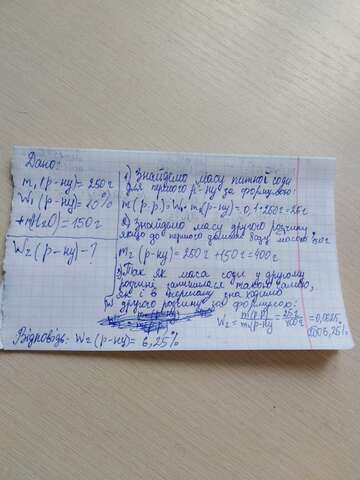 Дано:
m₁(р-ну) = 250г
W₁(р-ну) = 10%
+m(H₂O) = 150г
W₂(р-ну) - ?
1) Знайдемо масу питної соди
для першого р-ну за формулою:
m(р.р) = W₁ · m₁(р-ну) = 0,1 · 250г = 25г
2) Знайдемо масу другого розчину
якщо до першого долили воду масою 150г
m₂(р-ну) = 250г + 150г = 400г
3) Так як маса соди у другому
розчині залишилася такою самою,
як і в першому знаходимо
W другого розчину за формулою:
W₂ = m(р.р)/m₂(р-ну) = 25г/400г = 0,0625,
або 6,25%
Відповідь: W₂(р-ну) = 6,25%